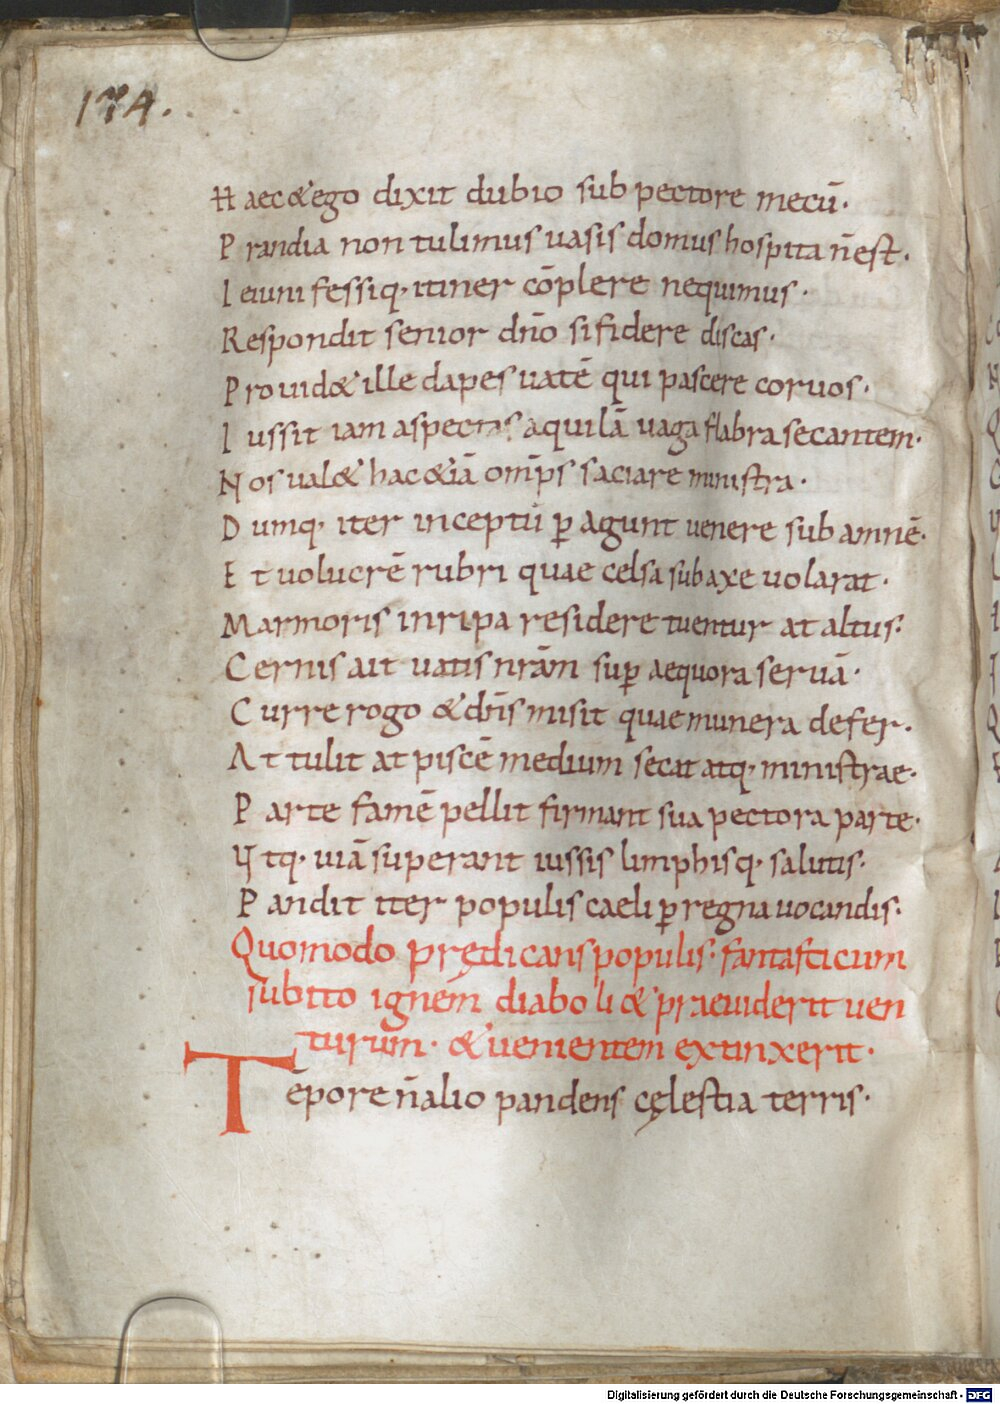 174.
Haec & ego dixit dubio sub pectore mecū·
Prandia non tulimus uasis domus hospita n̄ est·
Ieiuni fessiq· itiner cōplere nequimus·
Respondit senior dn̄o si fidere discas·
Prouid& ille dapes uatē qui pascere coruos·
Iussit iam aspectas aquilā uaga flabra secantem·
Nos ual& hac &iā om̄ps saciare ministra·
Dumq· iter inceptū ꝑ agunt uenere sub amnē·
Et uolucrē rubri quae celsa sub axe uolarat·
Marmoris in ripa residere tuentur at altus·
Cernis ait uatis nr̄am suꝑ aequora seruā·
Curre rogo & dn̄s misit quae munera defer·
Attulit at piscē medium secat atq· ministrae·
Parte famē pellit firmant sua pectora parte·
Ytq· uiā superant iussis limphisq· salutis·
Pandit iter populis caeli ꝑ regna uocandis·
Quomodo prędicans populis· fantasticum
subito ignem diaboli & praeuiderit uen
turum· & uenientem extinxerit·
Tēpore n̄ alio pandens cęlestia terris·
Digitalisierung gefördert durch die Deutsche Forschungsgemeinschaft - DFG